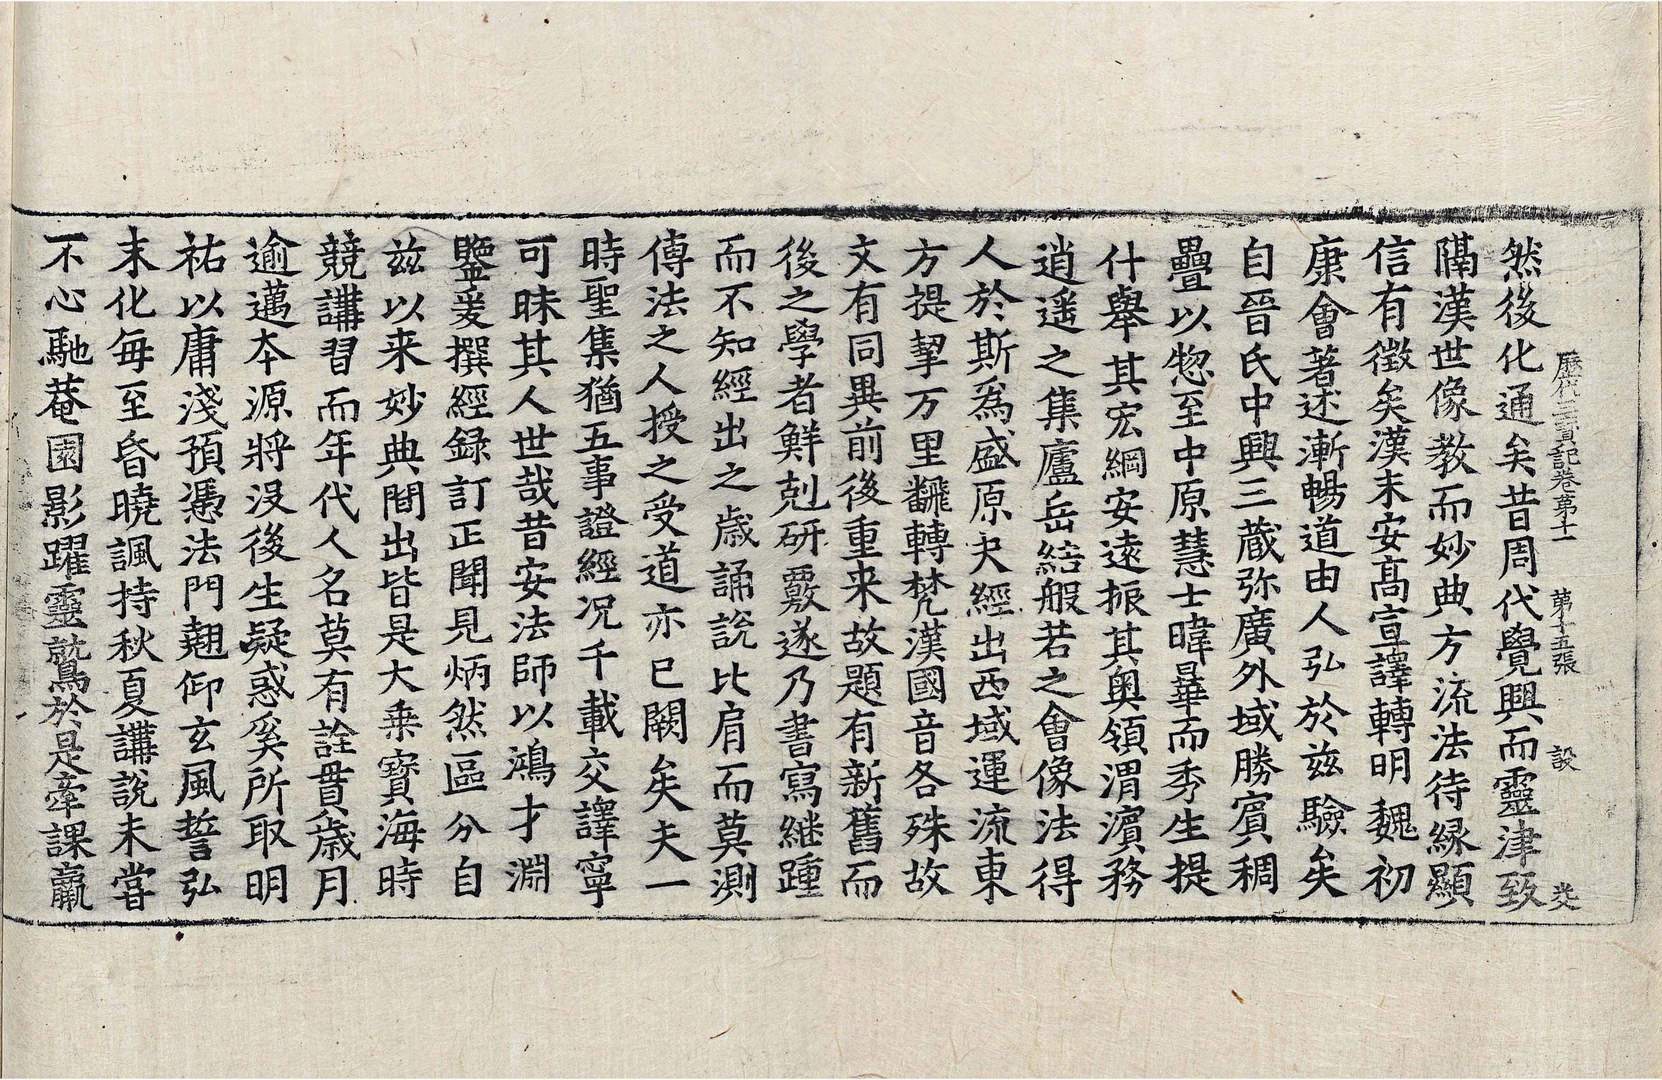 歷代三寶記卷第十一 第十五張 設
然後化通矣昔周代覺興而靈津致
隔漢世像教而妙典方流法待緣顯
信有徵矣漢末安高宣譯轉明魏初
康會著述漸暢道由人弘於兹驗矣
自晉氏中興三藏弥廣外域勝賓稠
疊以惣至中原慧士暐曄而秀生提
什舉其宏綱安遠振其奥領渭濱務
逍遥之集廬岳結般若之會像法得
人於斯為盛原夫經出西域運流東
方提挈万里飜轉梵漢國音各殊故
文有同異前後重来故題有新舊而
後之學者鮮剋研覈遂乃書寫継踵
而不知經出之歲誦說比肩而莫測
傳法之人授之受道亦已闕矣夫一
時聖集猶五事證經况千載交譯寧
可昧其人世哉昔安法師以鴻才淵
鑒爰撰經録訂正聞見炳然區分自
兹以来妙典間出皆是大乗寶海時
競講習而年代人名莫有詮貫歲月
逾邁本源將没後生疑惑奚所取明
祐以庸淺預憑法門翹仰玄風誓弘
末化每至昏曉諷持秋夏講說未甞
不心馳菴園影躍靈鷲於是牽課羸